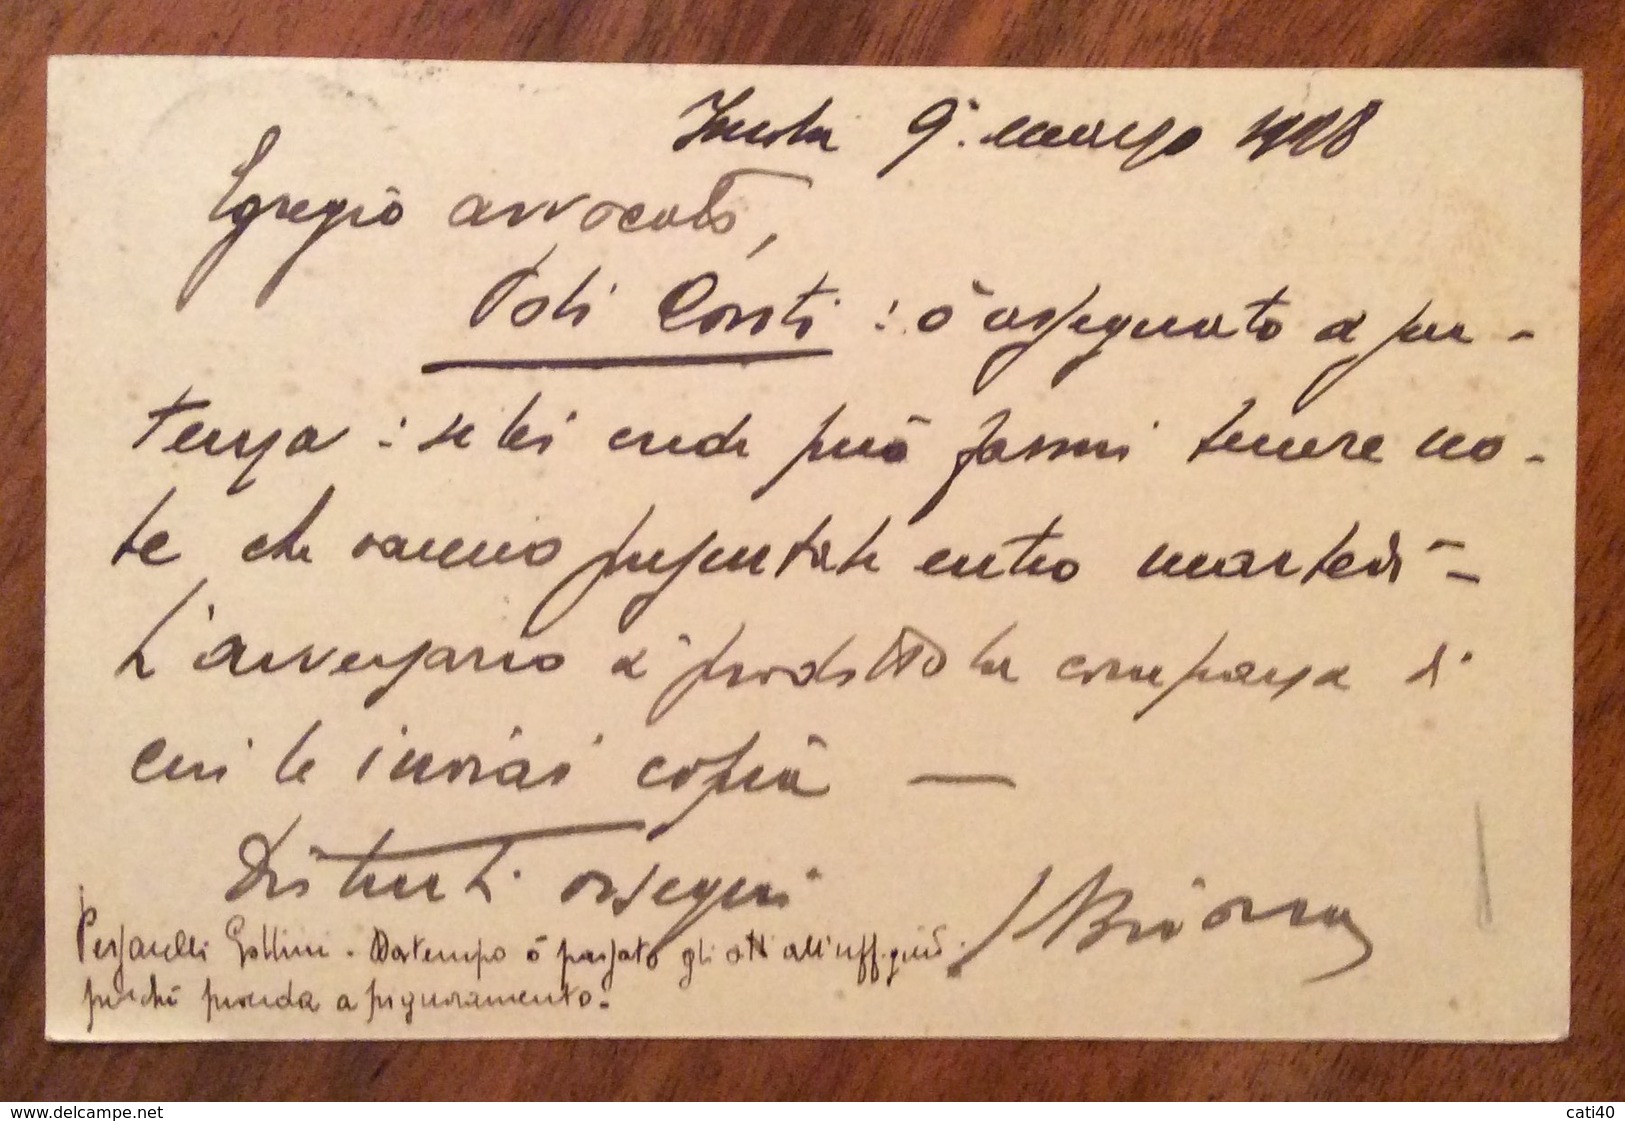 Imola 9. marzo 1918
Egregio avvocato,
Poli Conti : ò assegnato a sen-
tenza : se lei crede può farmi tenere no-
te che vanno presentate entro martedì -
L'avversario à prodotto la comparsa di
cui le inviai copia —
Distinti ossequi
Persarelli Gollini . Da tempo ò passato gli atti all'uff. giud.
perchè proceda a pignoramento.
www.delcampe.net
cati40